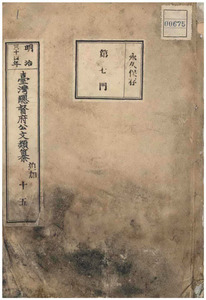 00675
永久保存
第七門
明治
三十四年
臺灣總督府公文類纂
十五